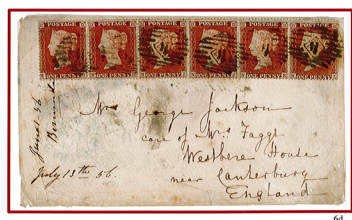 POSTAGE POSTAGE POSTAGE POSTAGE POSTAGE POSTAGE
ONE PENNY ONE PENNY ONE PENNY ONE PENNY ONE PENNY ONE PENNY
Mrs George Jackson
care of Mrs Fagge
Westbere House
near Canterbury
England
June 56
July 13th 56.
6d